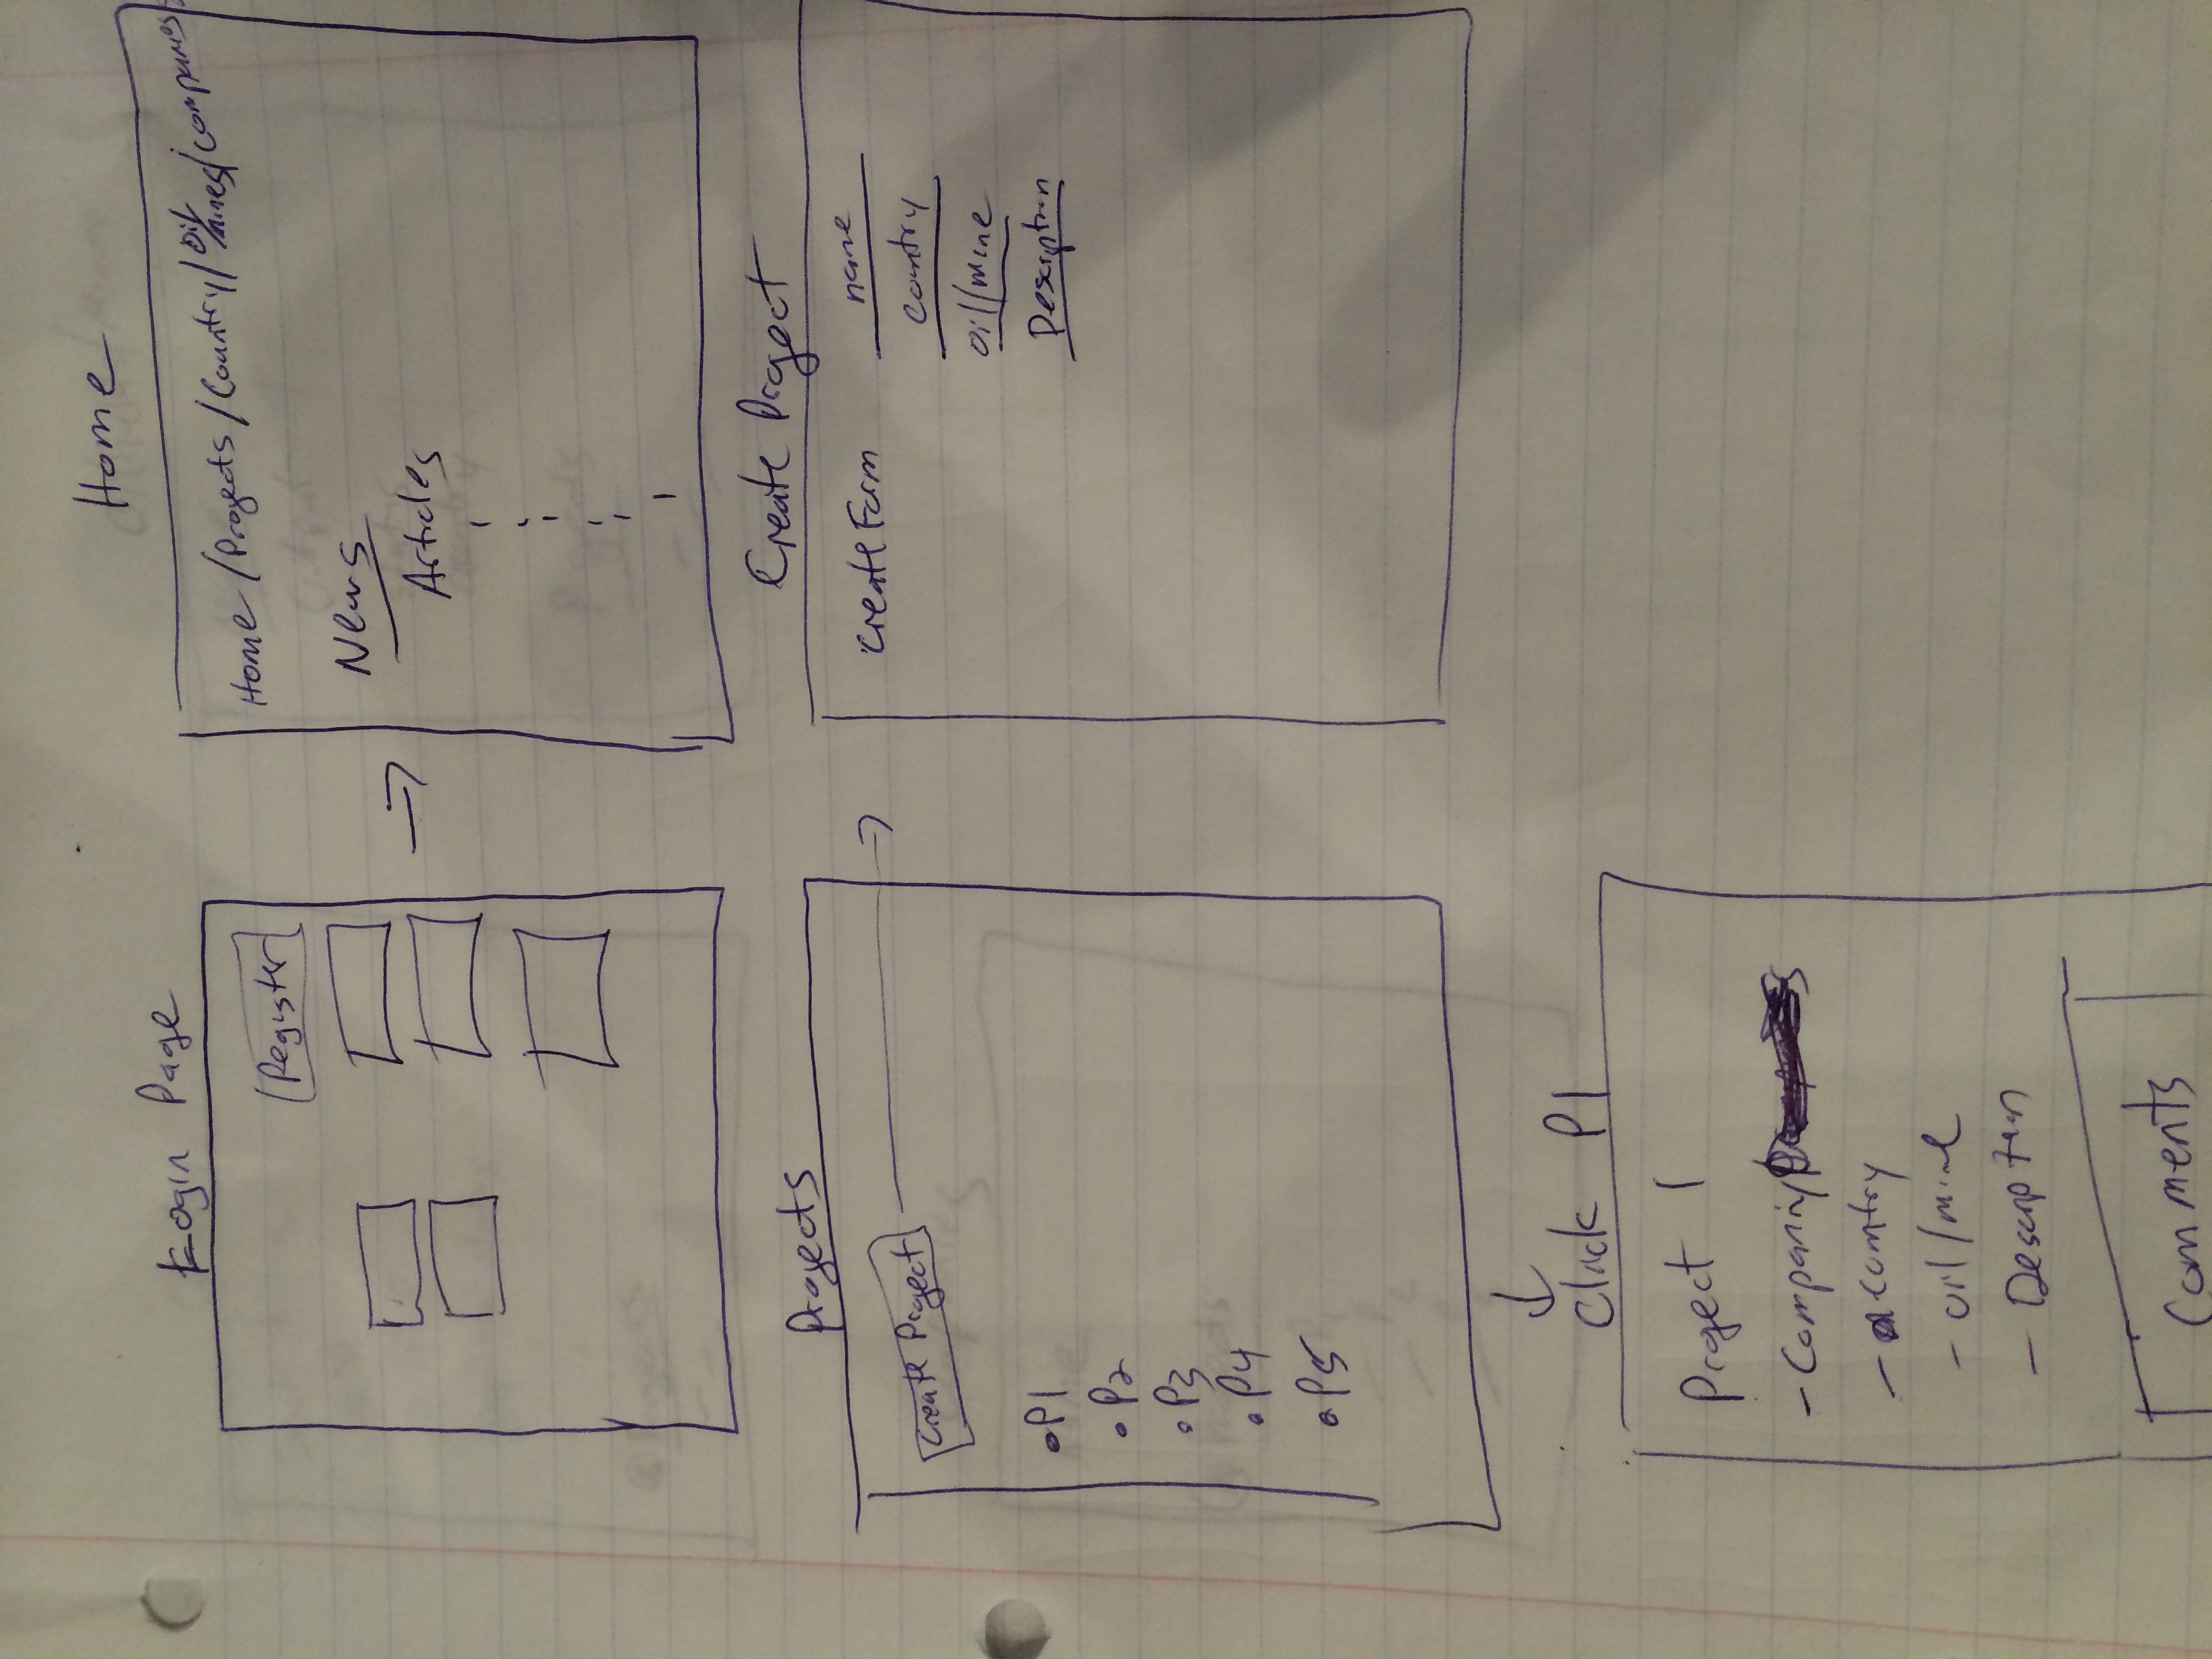 Login Page
Register
Home
Home/Projects/Country/Oil/mines/companies
News
Articles
Projects
Create Project
P1
P2
P3
P4
P5
Create Project
Create Form
name
country
oil/mine
Description
Click P1
Project 1
- Company
- country
- oil/mine
- Description
Comments